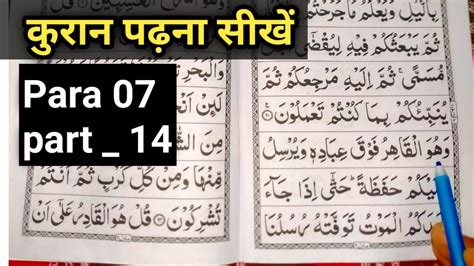 कुरान पढ़ना सीखें
Para 07
part _ 14
ثُمَّ يَبْعَثُكُمْ فِيْهِ لِيُقْضٰٓى
مُّسَمًّى ۚ ثُمَّ اِلَيْهِ مَرْجِعُكُمْ ثُمَّ
يُنَبِّئُكُمْ بِمَا كُنْتُمْ تَعْمَلُوْنَ
وَهُوَ الْقَاهِرُ فَوْقَ عِبَادِهٖ وَيُرْسِلُ
حَفَظَةً ۗ حَتّٰٓى اِذَا جَآءَ
الْمَوْتُ تَوَفَّتْهُ رُسُلُنَا
وَالْبَحْرِ
لَئِنْ
مِنَ
مِّنْهَا وَمِنْ كُلِّ كَرْبٍ ثُمَّ اَنْتُمْ
تُشْرِكُوْنَ قُلْ هُوَ الْقَادِرُ عَلٰٓى اَنْ